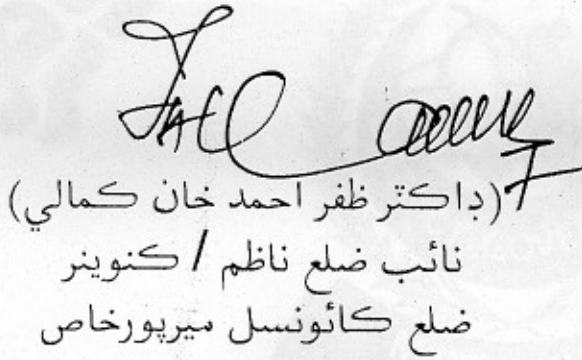 (ڊاڪٽر ظفر احمد خان ڪمالي)
نائب ضلع ناظم / ڪنوينر
ضلع ڪائونسل ميرپورخاص